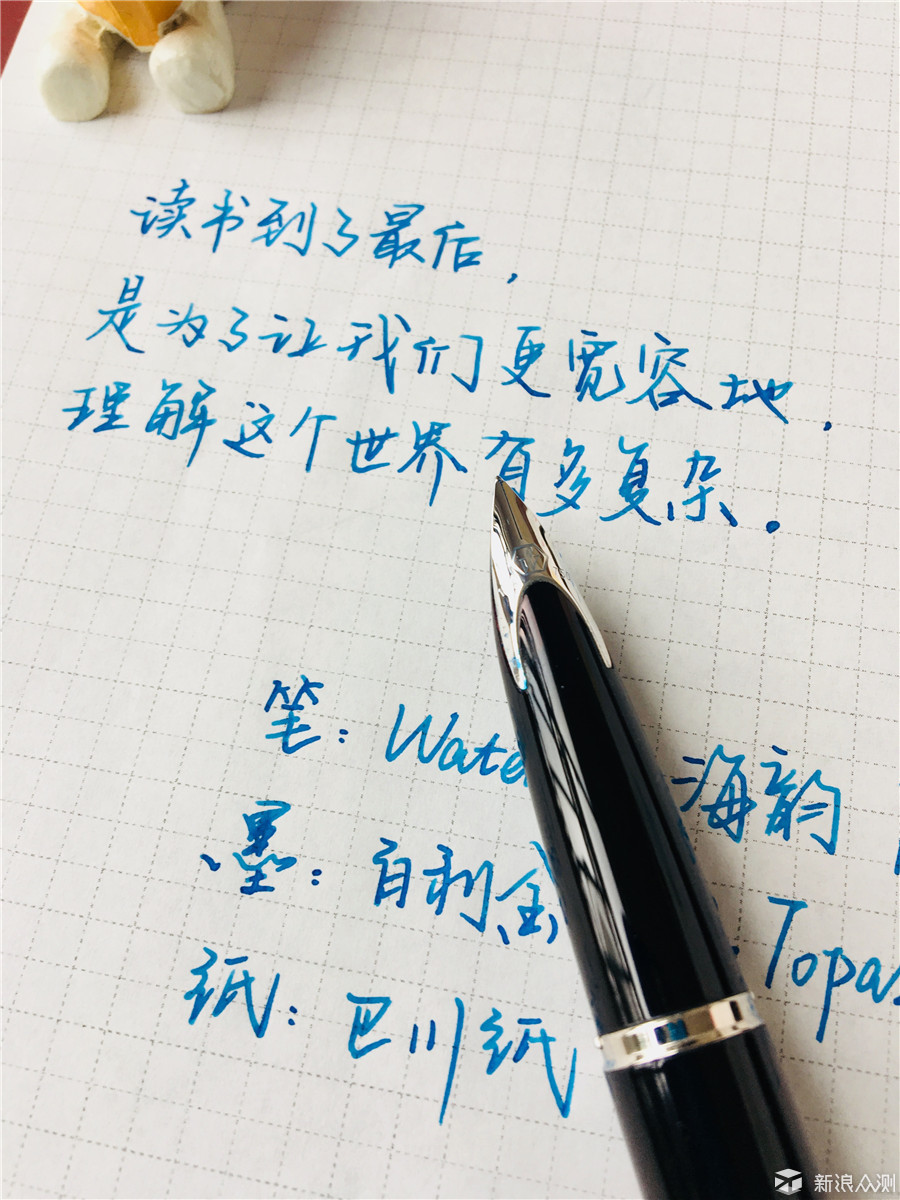 读书到了最后，
是为了让我们更宽容地，
理解这个世界有多复杂。
笔：Wate 海韵
墨：百利金 Topas
纸：巴川纸
新浪众测